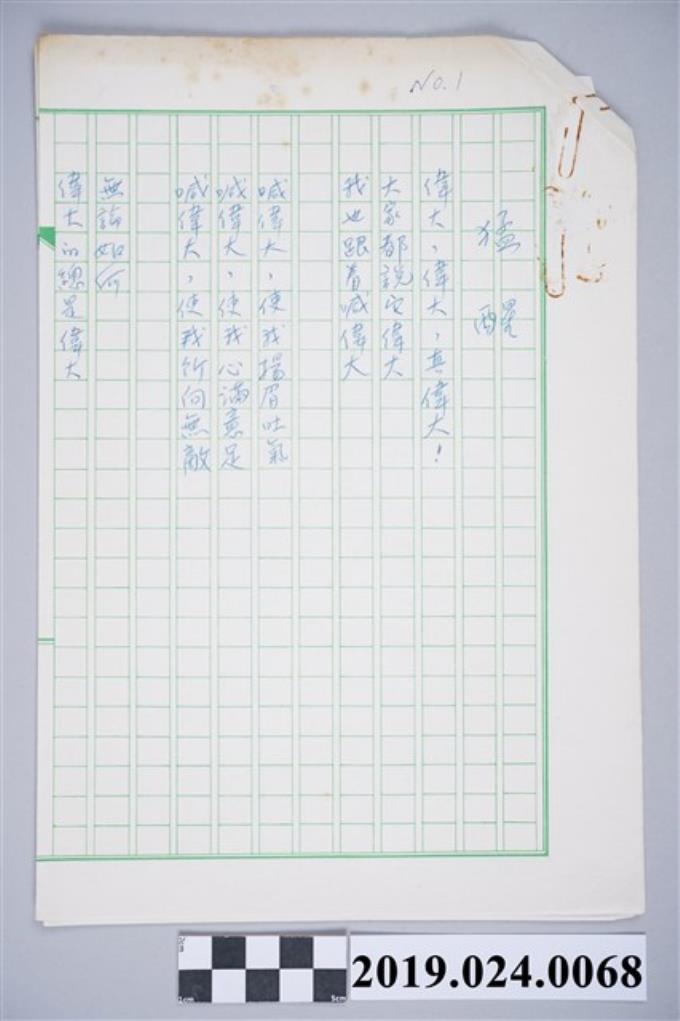 No.1
猛醒
偉大，偉大，真偉大！
大家都說它偉大
我也跟着喊偉大
喊偉大，使我揚眉吐氣
喊偉大，使我心滿意足
喊偉大，使我所向無敵
無論如何
偉大的總是偉大
1cm
5cm
2019.024.0068